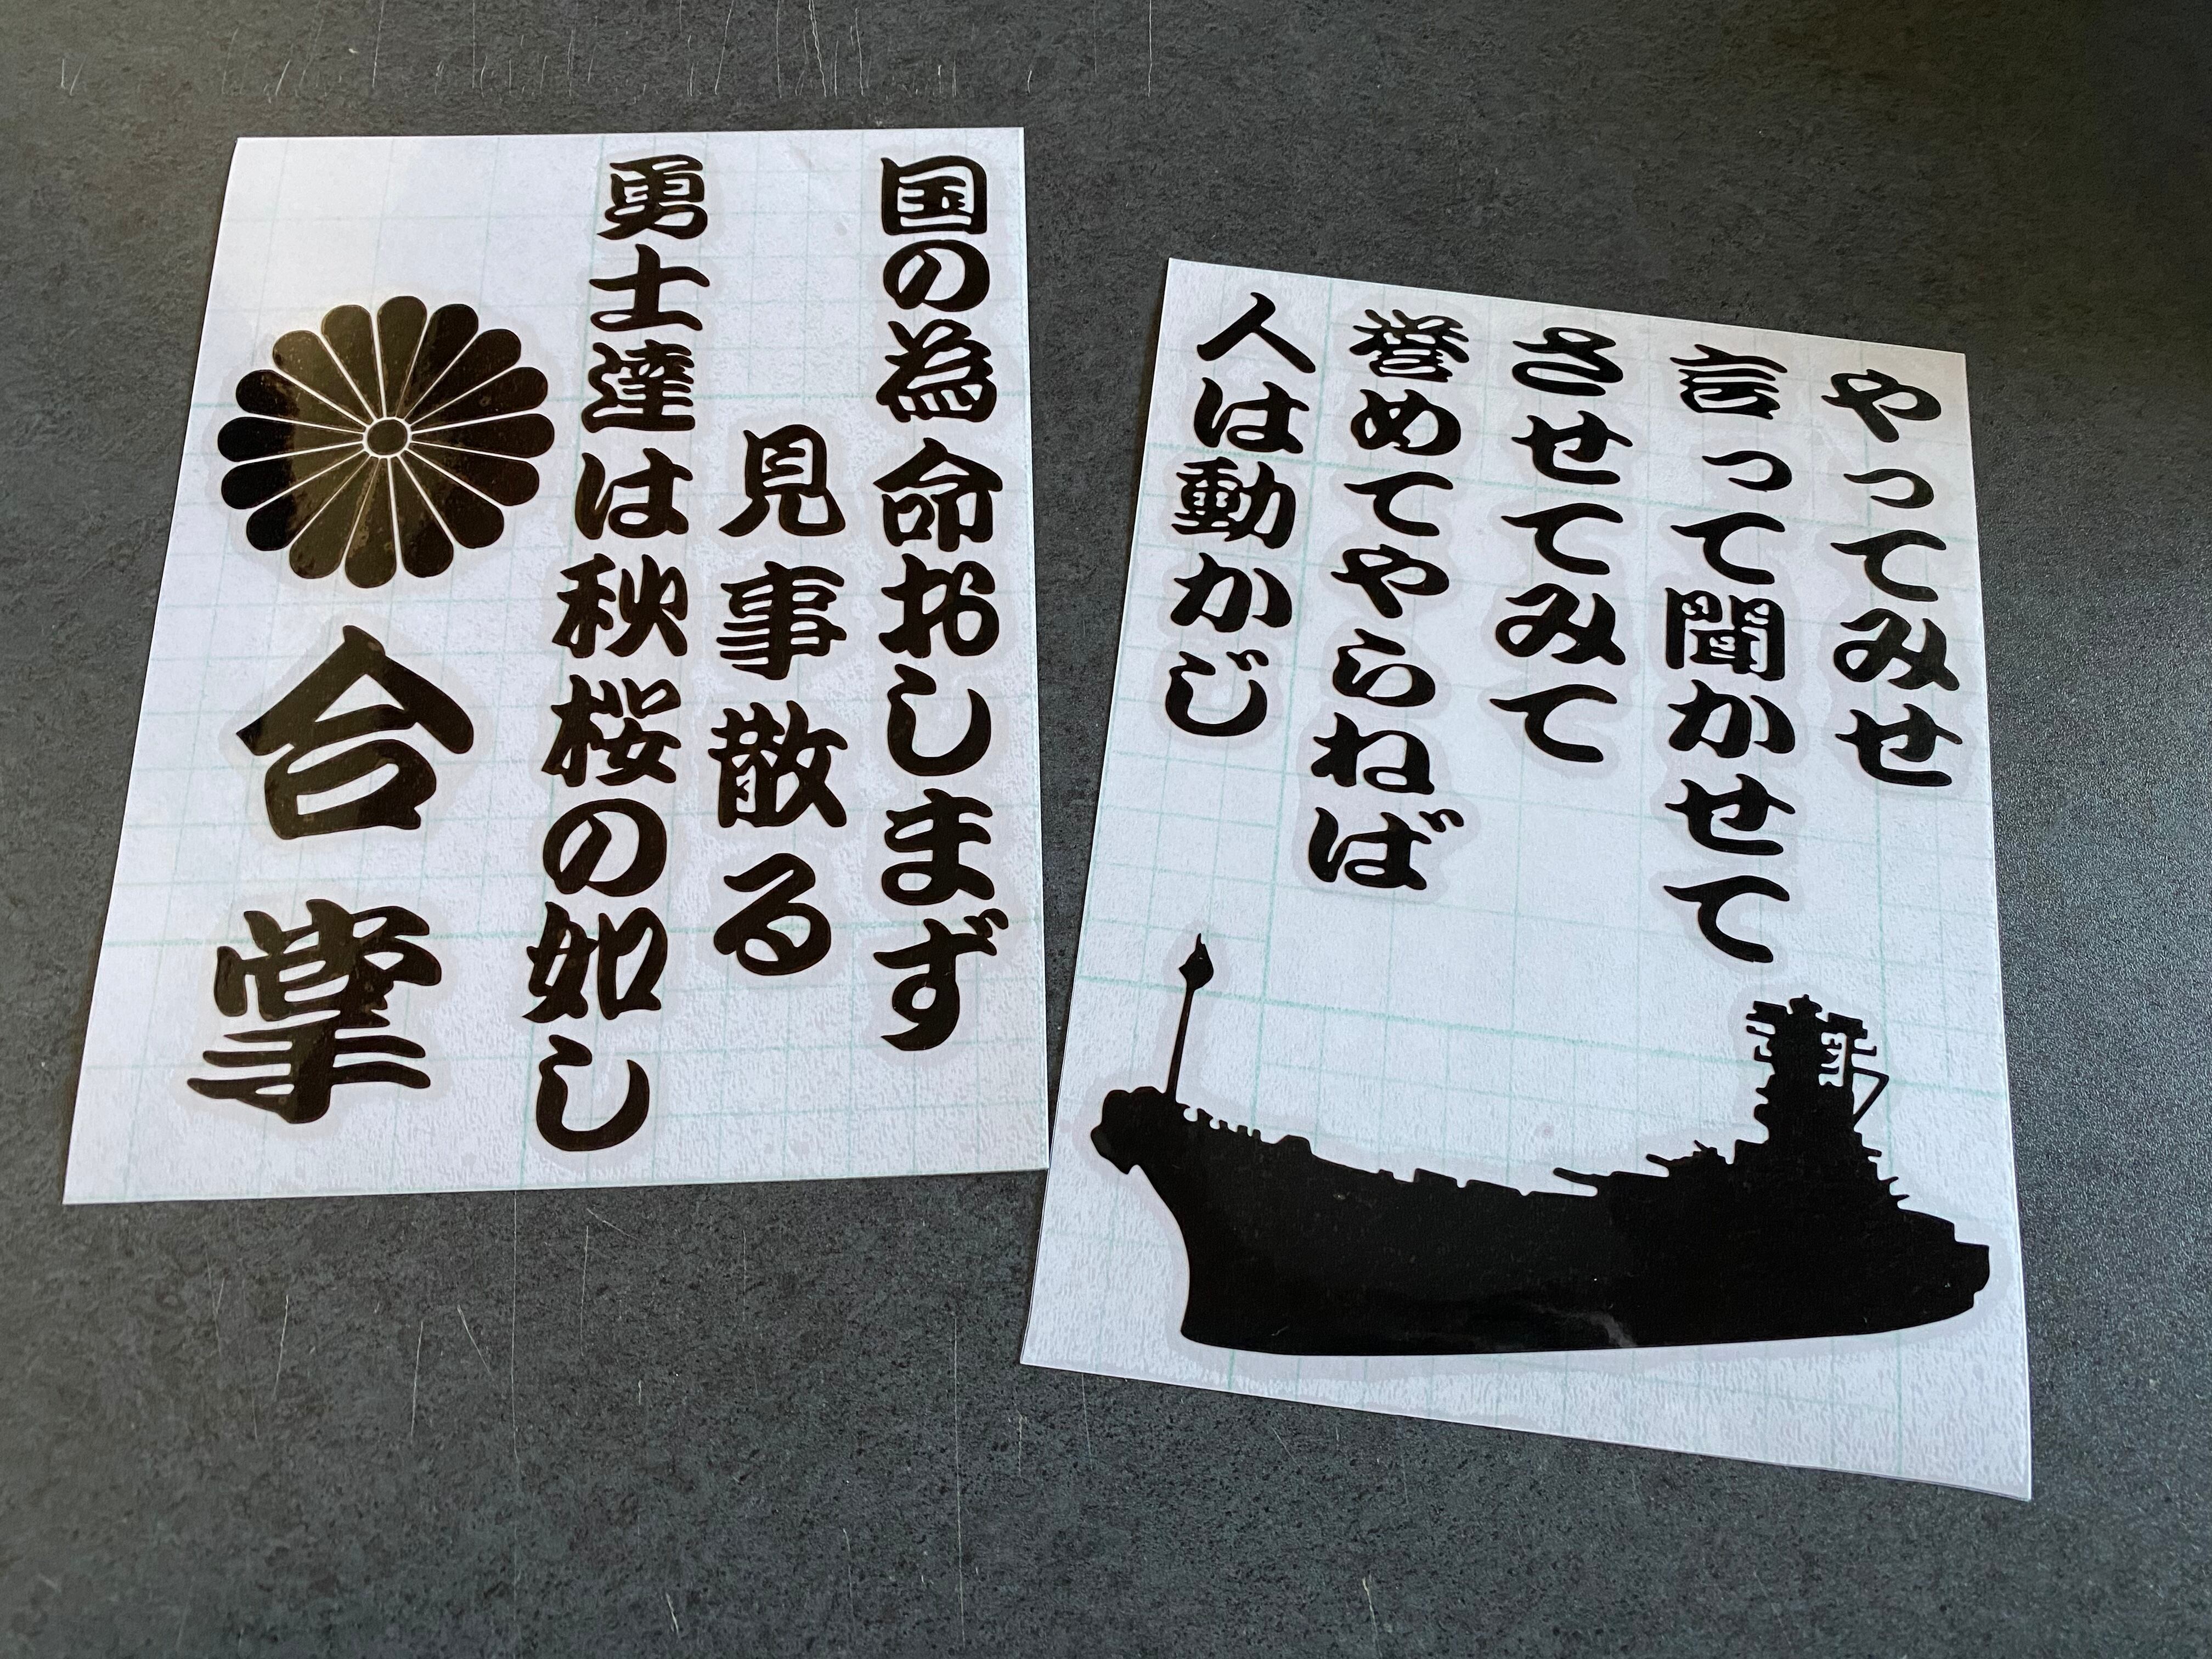 国の為 命おしまず
見事散る
勇士達は秋桜の如し
合掌
やってみせ
言って聞かせて
させてみて
誉めてやらねば
人は動かじ